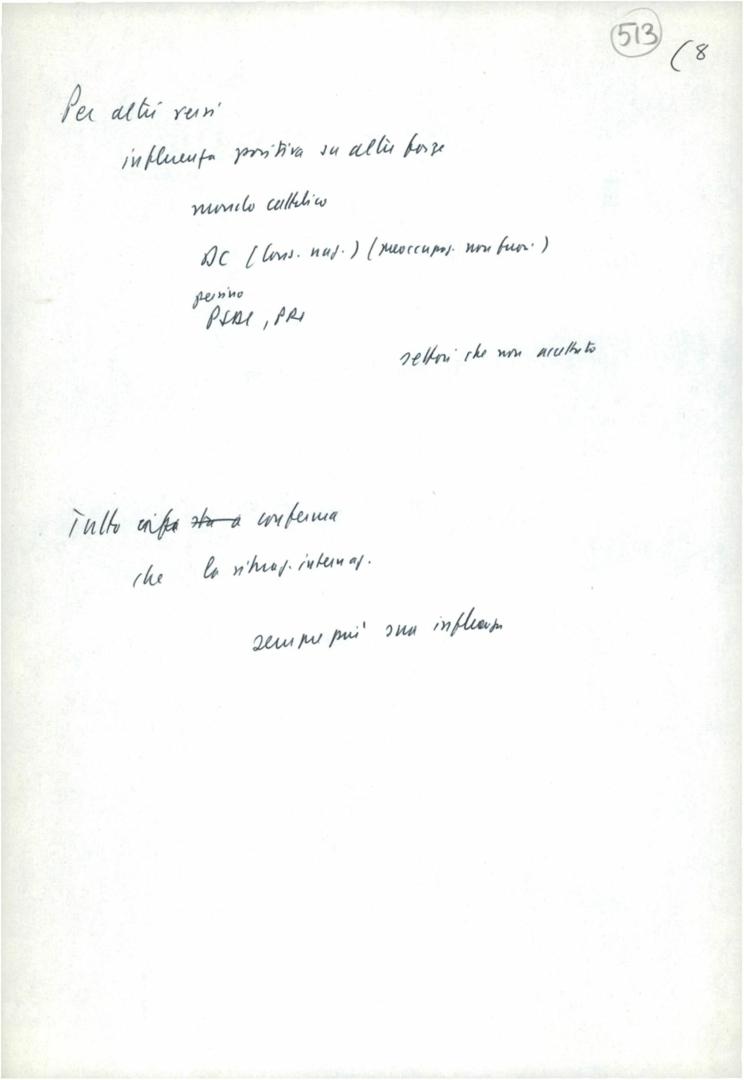 513
(8
Per altri versi
influenza positiva su altre forze
mondo cattolico
DC (Cons. naz.) (preoccupaz. non fuor.)
persino
PSDI, PRI
settori che non
Tutto ciò conferma
che la situaz. internaz.
sempre più sua influenza